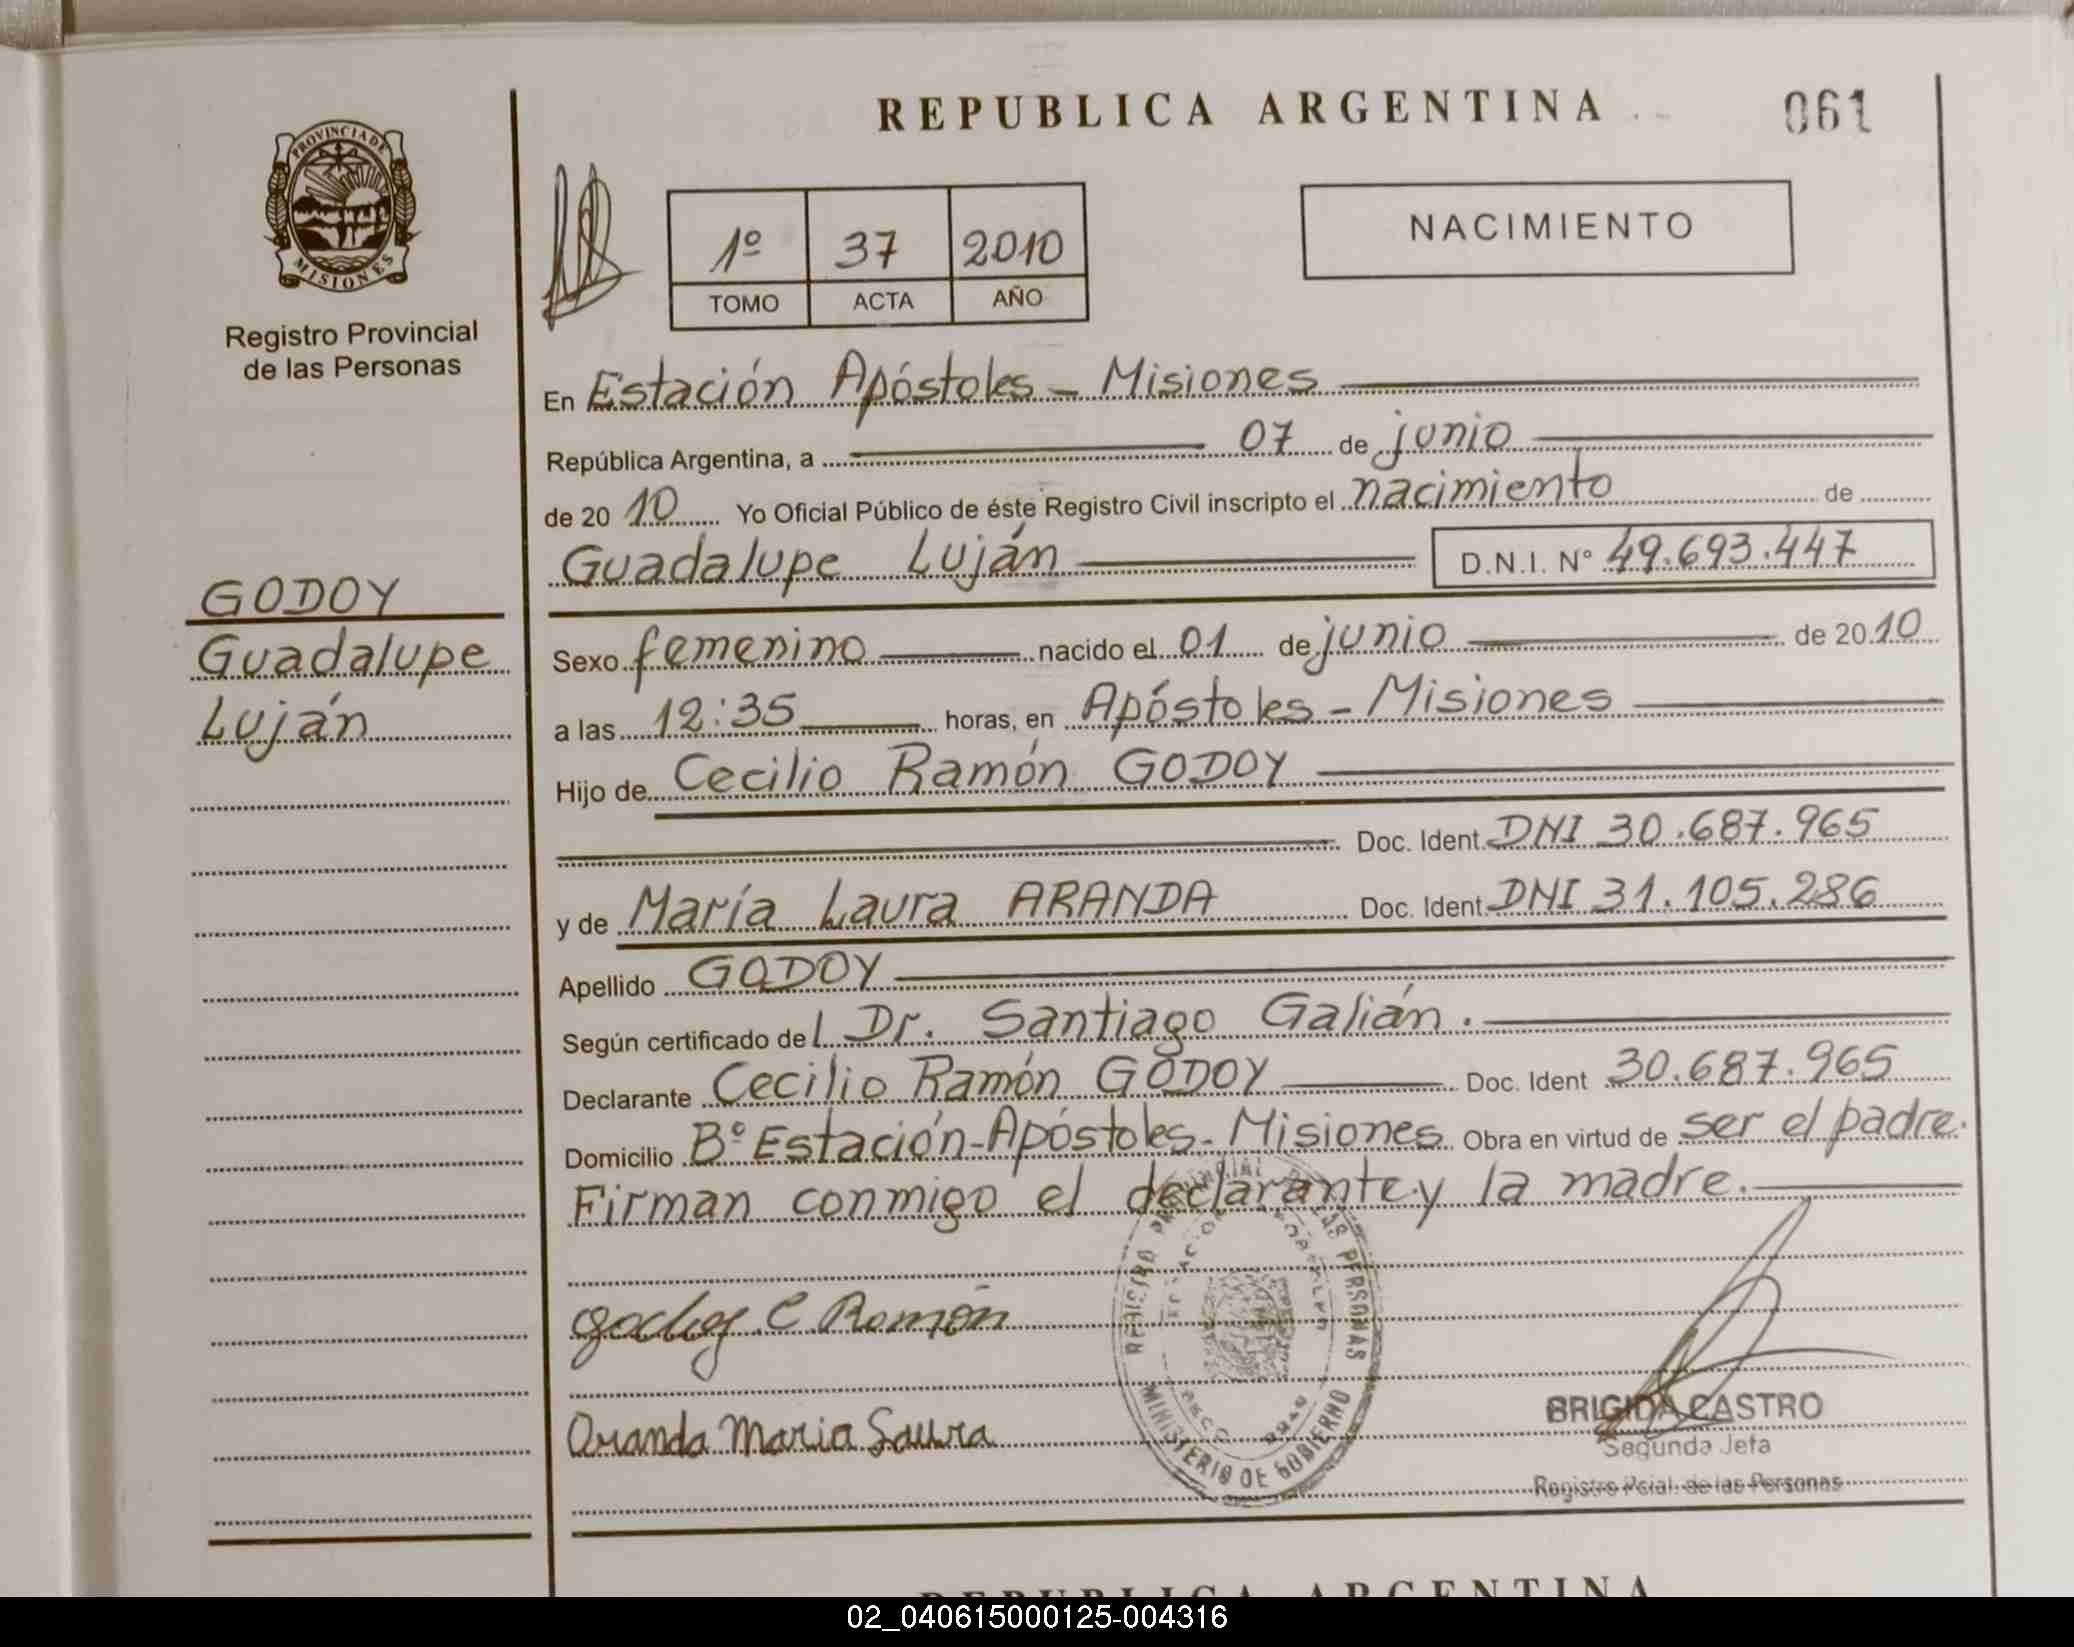 REPUBLICA ARGENTINA
061
PROVINCIA DE
MISIONES
Registro Provincial
de las Personas
1º 37 2010
TOMO ACTA AÑO
NACIMIENTO
En Estación Apóstoles - Misiones
República Argentina, a 07 de junio
de 20 10 Yo Oficial Público de éste Registro Civil inscripto el nacimiento de
Guadalupe Luján D.N.I. Nº 49.693.447
GODOY
Guadalupe
Luján
Sexo femenino nacido el 01 de junio de 20 10
a las 12:35 horas, en Apóstoles - Misiones
Hijo de Cecilio Ramón GODOY
Doc. Ident. DNI 30.687.965
y de María Laura ARANDA Doc. Ident. DNI 31.105.286
Apellido GODOY
Según certificado de l Dr. Santiago Galián.
Declarante Cecilio Ramón GODOY Doc. Ident 30.687.965
Domicilio Bº Estación-Apóstoles-Misiones Obra en virtud de ser el padre.
Firman conmigo el declarante y la madre.
godoy C Ramón
Aranda Maria Laura
REGISTRO PROVINCIAL DE LAS PERSONAS
MINISTERIO DE GOBIERNO
BRIGIDA CASTRO
Segunda Jefa
Registro Pcial. de las Personas
REPUBLICA ARGENTINA
02_040615000125-004316